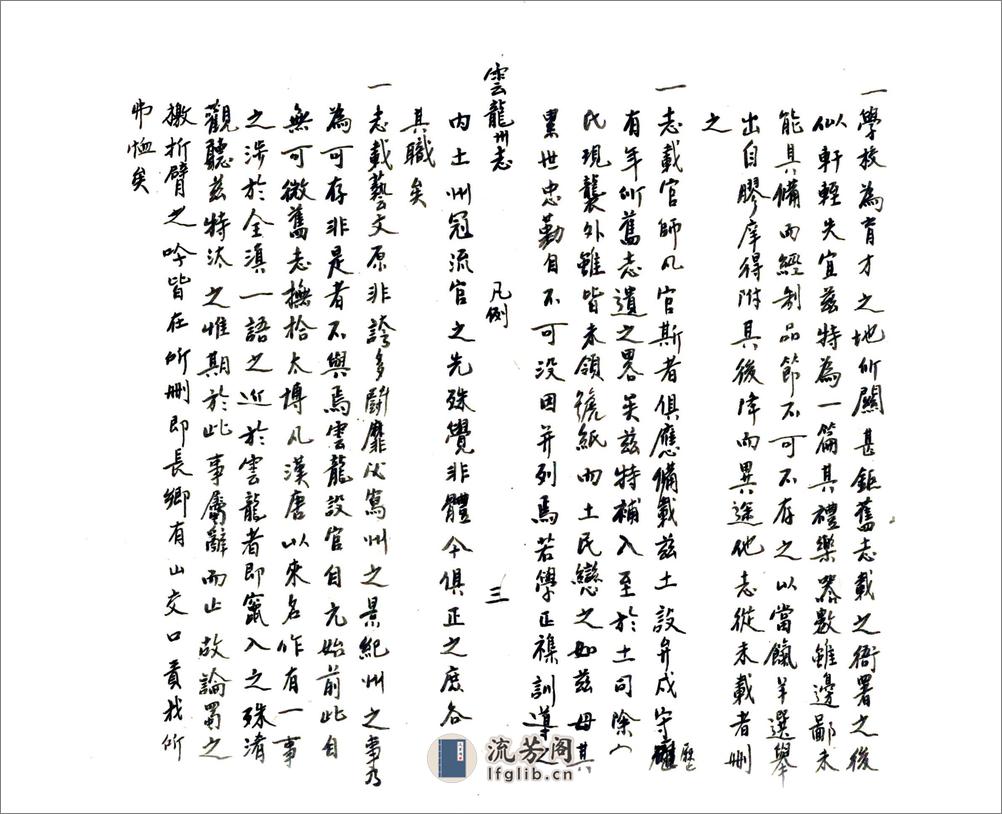 一學校為育才之地所關甚鉅舊志載之衙署之後
似軒輊失宜茲特為一篇其禮樂器數雖邊鄙未
能具備而經制品節不可不存之以當餼羊選舉
出自膠庠得附其後降而異途他志從未載者刪
之
一志載官師凡官斯者俱應備載茲土設弁戍守歷
有年所舊志遺之畧矣茲特補入至於土司除
氏現襲外雖皆未領號紙而土民戀之如茲母其
累世忠勤自不可沒因并列焉若學正襍訓導之
雲龍州志 凡例 三
內土州冠流官之先殊覺非體今俱正之庶各
其職矣
一志載藝文原非誇多鬭靡以寫州之景紀州之事乃
為可存非是者不與焉雲龍設官自元始前此自
無可徵舊志摭拾太博凡漢唐以來名作有一事
之涉於全滇一語之近於雲龍者即竄入之殊淆
觀聽茲特汰之惟期於此事屬辭而止故論蜀之
檄折臂之吟皆在所刪即長鄉有山交口責我所
弗恤矣
流芳阁
lfglib.cn